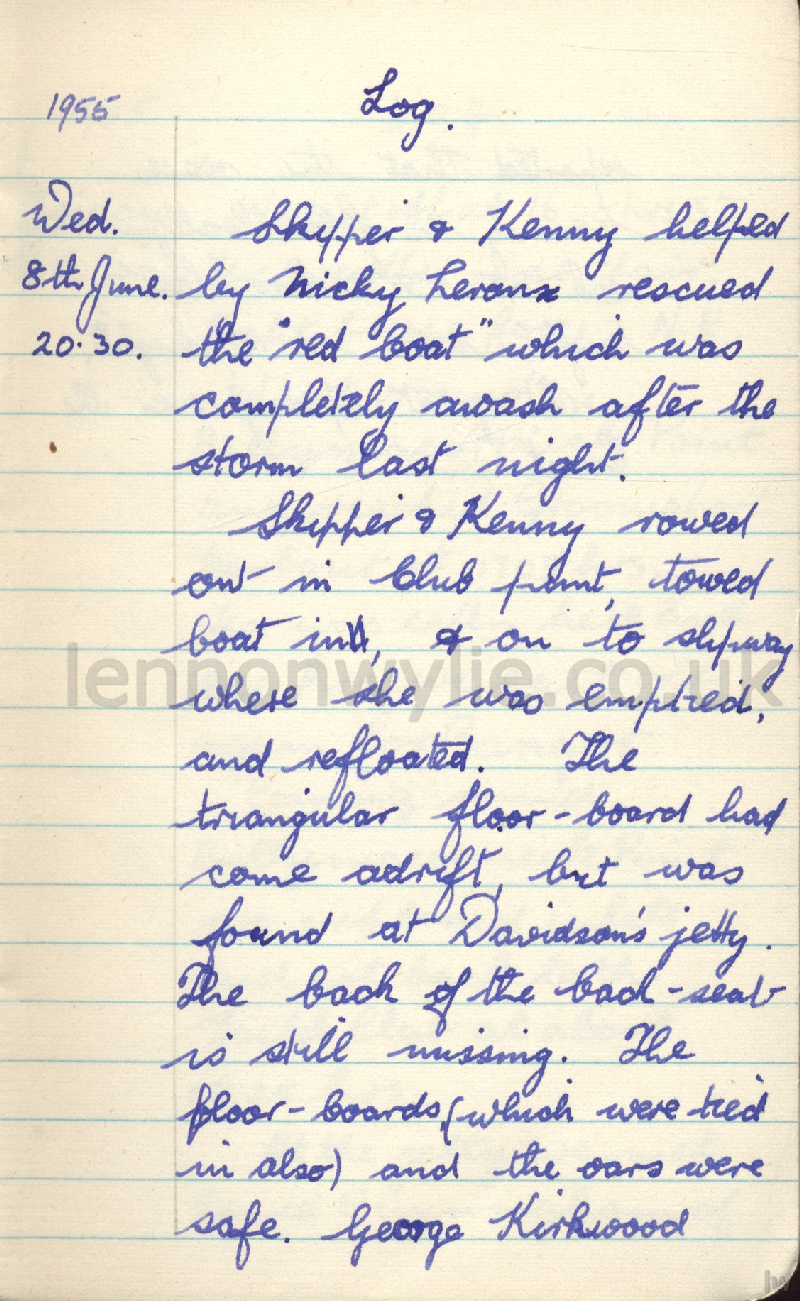 1955
Log.
Wed.
8th June.
20.30.
Skipper & Kenny helped
by Nicky rescued
the "red boat" which was
completely awash after the
storm last night.
Skipper & Kenny rowed
out in Club punt, towed
boat in, & on to slipway
where she was emptied,
and refloated. The
triangular floor-board had
come adrift, but was
found at Davidson's jetty.
The back of the back-seat
is still missing. The
floor-boards, (which were tied
in also) and the oars were
safe. George Kirkwood
lennonwylie.co.uk
lw